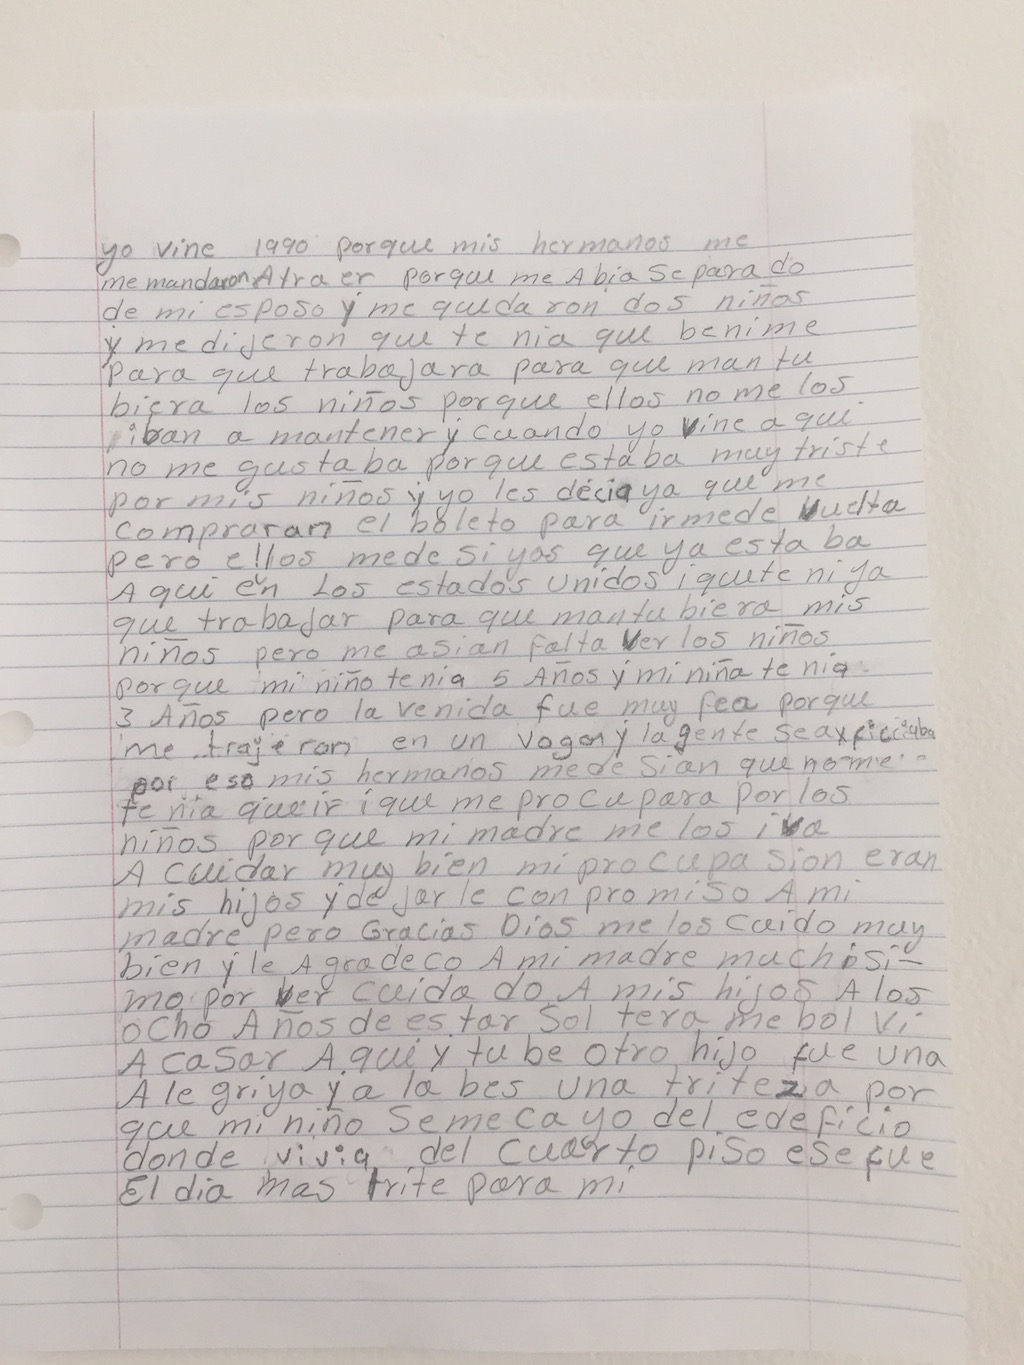 yo vine 1990 porque mis hermanos me
me mandaron Atra er porque me Abia Separado
de mi esposo y me queda ron dos niños
y me dijeron que te nia que benime
para que trabajara para que man tu
biera los niños porque ellos no me los
iban a mantener y cuando yo vine a qui
no me gustaba porque estaba muy triste
por mis niños y yo les decia ya que me
compraran el boleto para irmede vuelta
pero ellos mede Si yos que ya esta ba
A qui en Los estados unidos i que te ni ya
que trabajar para que mantu biera mis
niños pero me asian falta ver los niños
porque mi niño tenia 5 Años y mi niña te nia
3 Años pero la venida fue muy fea porque
me trajeron en un vagon y la gente se axficciaba
por eso mis hermanos mede Sian que no me
te nia que ir i que me pro cu para por los
niños por que mi madre me los iva
A cuidar muy bien mi pro cupa sion eran
mis hijos y de jar le con pro miso A mi
madre pero Gracias Dios me los cuido muy
bien y le A gradeco A mi madre muchisi-
mo por ver cuida do A mis hijos A los
ocho Años de es tar Sol tera me bol vi
A casar A qui y tu be otro hijo fue una
A le griya y a la bes una triteza por
que mi niño Se me ca yo del edeficio
donde vivia del cuarto piso ese fue
El dia mas trite para mi